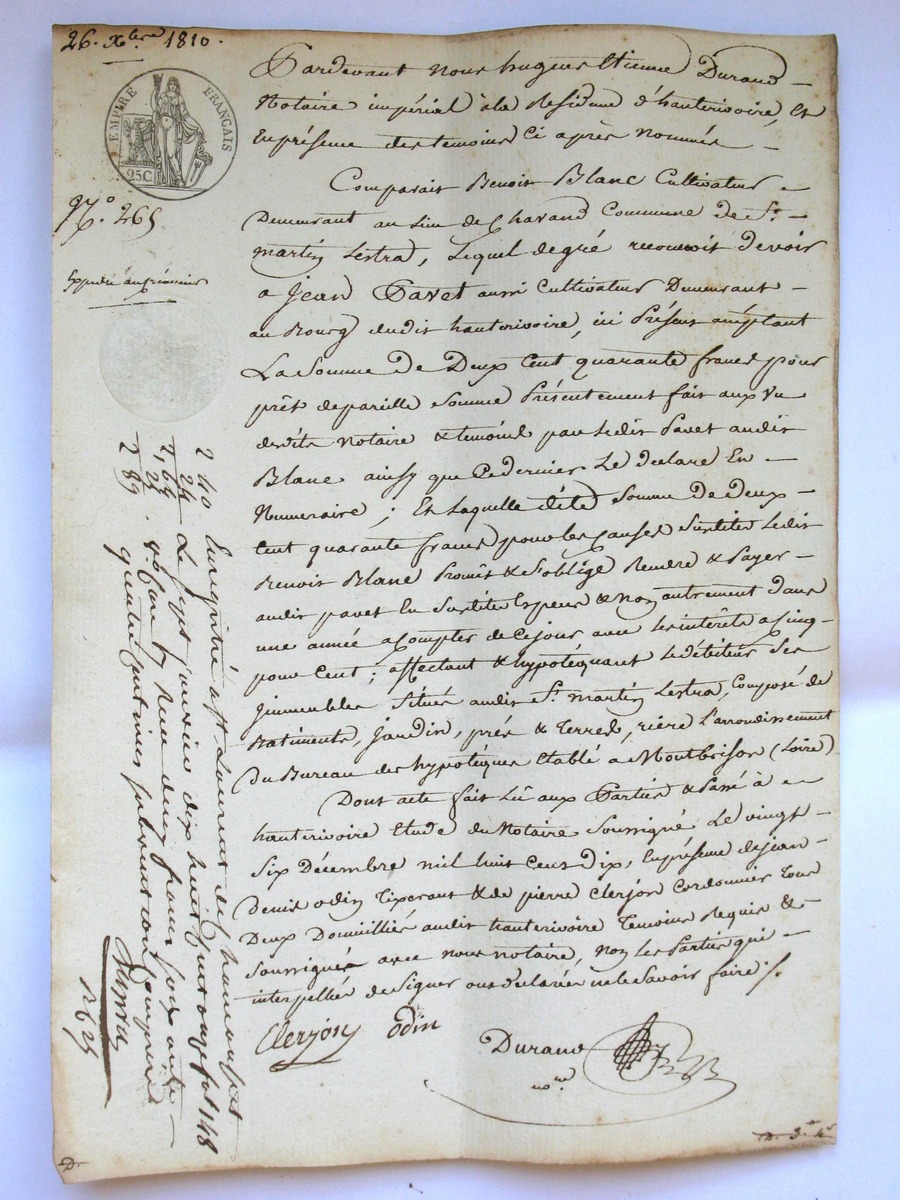 26. Xbre 1810.
EMPIRE FRANÇAIS
25C.
No. 265
Expédié au créancier
Pardevant nous hugues Etienne Durand
Notaire impérial à la Residence d'hauterivoire, et
En présence des temoins Ci après Nommés
Comparait Benoit Blanc Cultivateur
Demeurant au lieu de Chavand Commune de St.
martin Lestra, Lequel de gré reconnoit devoir
a Jean Pavet aussi Cultivateur Demeurant
au Bourg dudit hauterivoire, ici Présent acceptant
La Somme De Deux Cent quarante francs pour
prêt de pareille Somme Présentement fait aux Vu
desdits Notaire & temoins par Ledit Pavet audit
Blanc ainsy que Ce dernier Le declare En
Numeraire; Et Laquelle dite Somme De Deux
Cent quarante francs pour les Causes Susdites Ledit
Benoit Blanc Promet & S'oblige Rendre & Payer
audit pavet En Susdites Especes & Non autrement Dans
une année a Compter de Ce jour avec les interêts a Cinq
pour Cent; affectant & hypotéquant Le débiteur Ses
immeubles Situés audit St. martin Lestra, Composé de
Batiments, Jardin, prés & Terres, riere L'arrondissement
Du Bureau des hypotéques Etablé a Montbrison (Loire)
Dont acte fait Lû aux Parties & Passé à
hauterivoire Etude du Notaire Soussigné Le vingt
Six Décembre mil huit Cent Dix, En présence de jean
Denis odin Tixerant & de pierre Clerjon Cordonnier Tous
Deux Domicilliés audit hauterivoire Temoins Requis &
Soussignés avec nous notaire, Non les Parties qui
interpellées de Signer ont declarées ne le Savoir faire ./.
Clerjon odin
Durand
nore
240
24
2,64
25
289
Enregistré à St. Laurent de Chamousset
Le Sept janvier dix huit cent onze fol 148
Vo Case 6 Reçu deux francs soixante
quatre centimes subvention comprise
D.